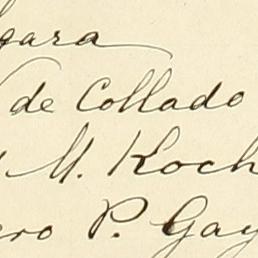 gara
de Collado
M. Koch
ero P. Gay